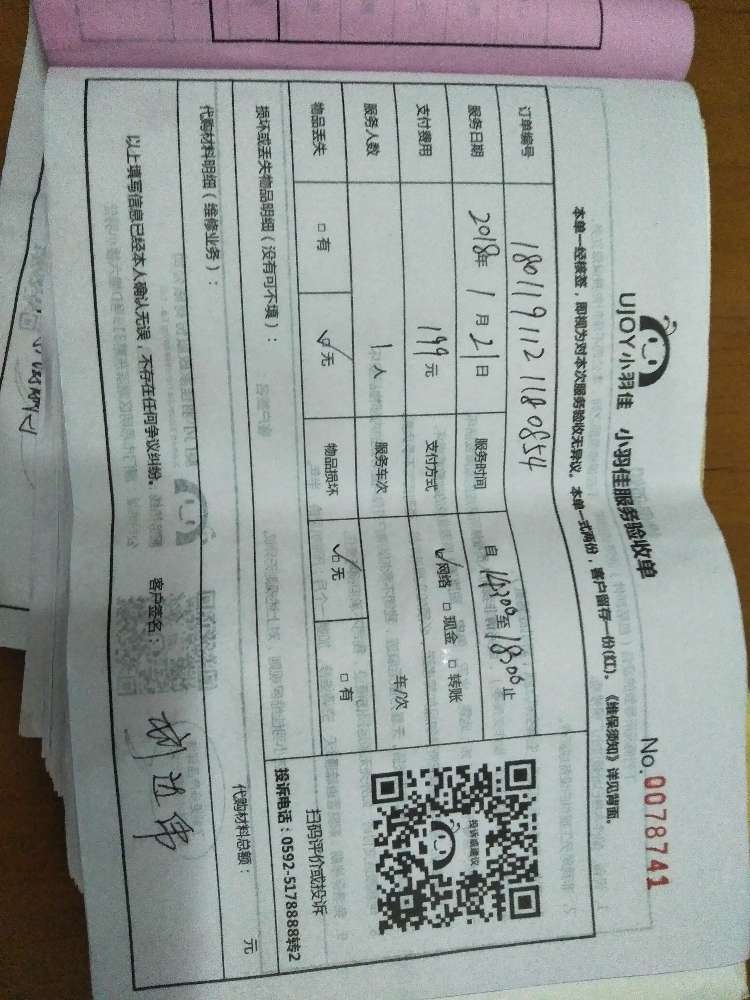 UJOY小羽佳 小羽佳服务验收单
No.0078741
本单一经核签，即视为对本次服务验收无异议。本单一式两份，客户留存一份(红)。《维保须知》详见背面。
订单编号 1801191121180854
服务日期 2018年1月21日 服务时间 自14:00至18:00止
支付费用 199元 支付方式 网络 现金 转账
服务人数 1人 服务车次 车/次
物品丢失 有 无 物品损坏 无 有
投诉或建议
扫码评价或投诉
投诉电话：0592-5178888转2
损坏或丢失物品明细（没有可不填）：
代购材料明细（维修业务）：
代购材料总额： 元
以上填写信息已经本人确认无误，不存在任何争议纠纷。 客户签名：